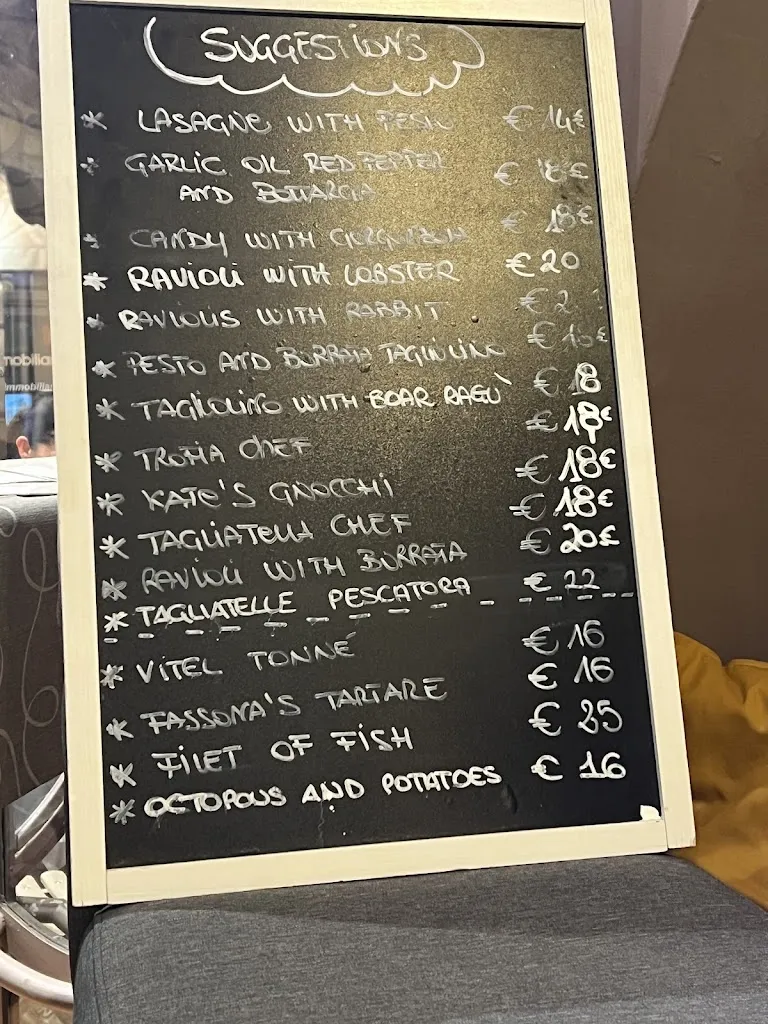 SUGGESTIONS
* LASAGNE WITH PESTO € 14€
* GARLIC OIL RED PEPPER € 18€
AND BOTTARGA
* CANDY WITH € 18€
* RAVIOLI WITH LOBSTER € 20
* RAVIOLIS WITH RABBIT €
* PESTO AND BURRATA TAGLIOLINO €
* TAGLIOLINO WITH BOAR RAGU' € 18
* TROFIA CHEF € 18€
* KATE'S GNOCCHI € 18€
* TAGLIATELLA CHEF € 18€
* RAVIOLI WITH BURRATA € 20€
* TAGLIATELLE PESCATORA € 22
* VITEL TONNÉ € 16
* FASSONA'S TARTARE € 16
* FILET OF FISH € 25
* OCTOPOUS AND POTATOES € 16
mobiliar
mmobiliar